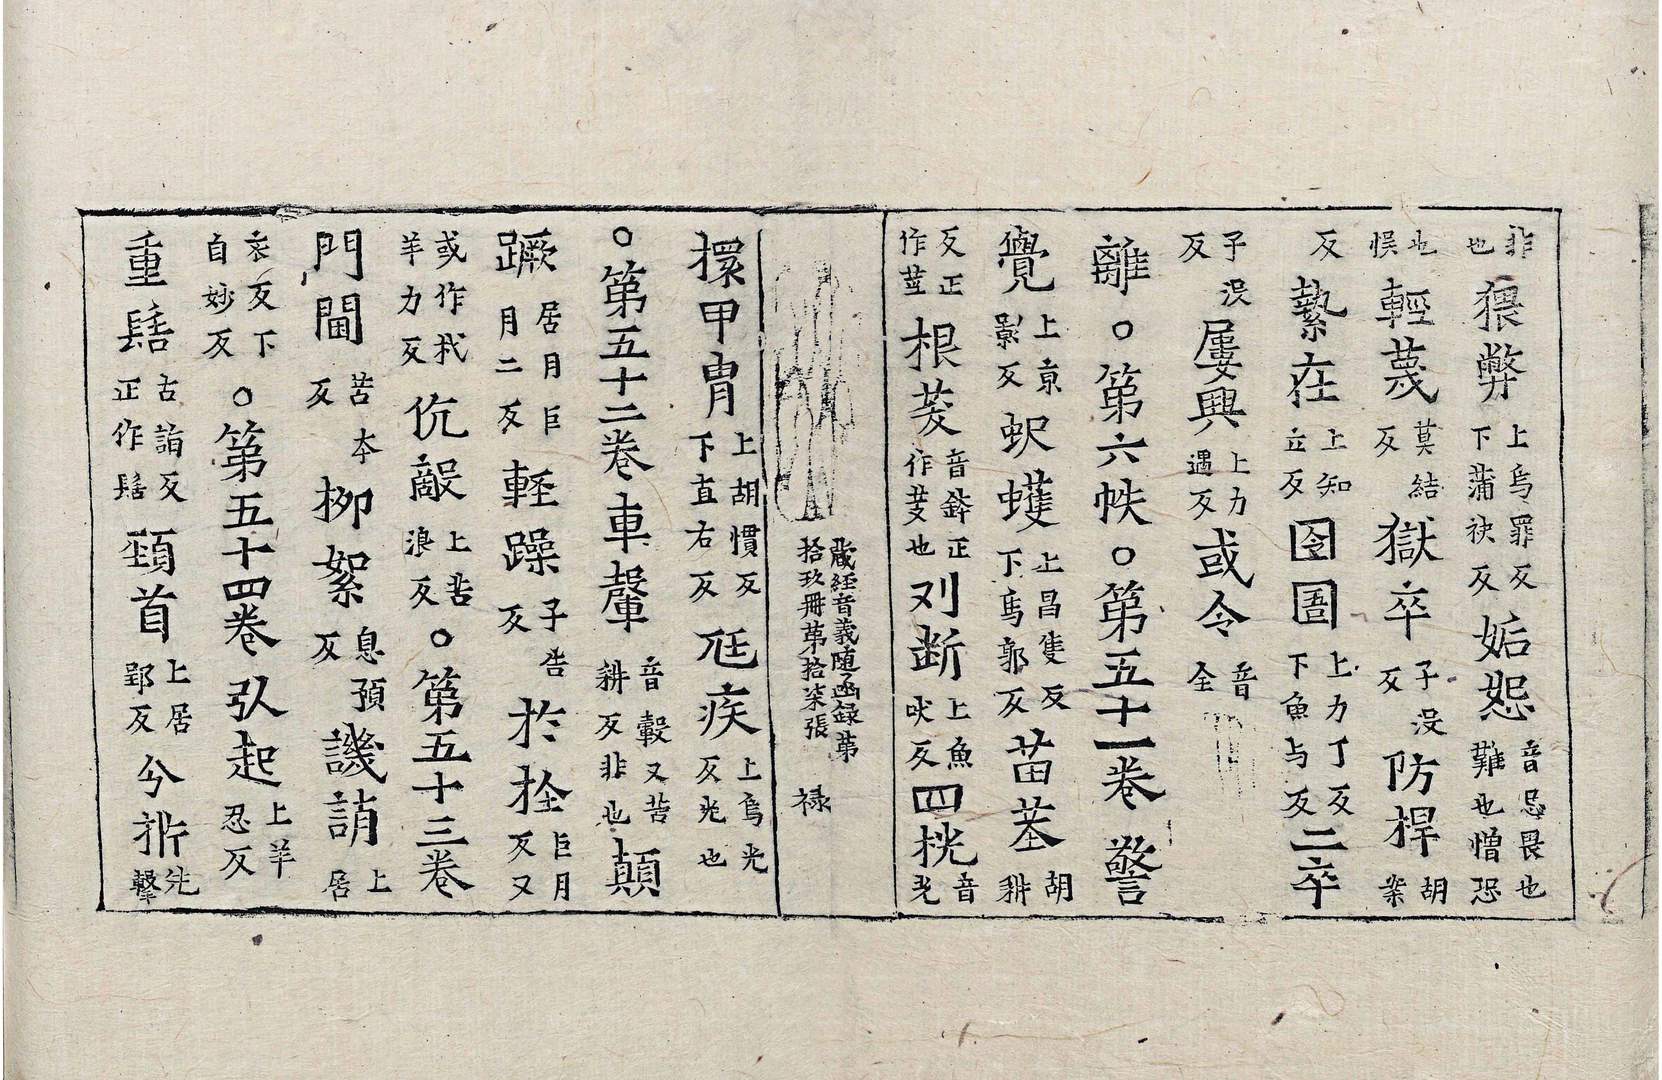 非也猥弊上烏罪反下蒲袂反姤恕音忌畏也難也憎恐
也悮輕蔑莫結反獄卒子没反防捍胡案
反縶在上知立反囹圄上力丁反下魚与反二卒
子没反屢興上力遇反或令音全
離○第六帙○第五十一卷警
覺上京影反蚇蠖上昌隻反下烏郭反苗基胡耕
反正作莖根茭音絳正作茇也刈斷上魚吠反四桄音光
藏經音義随函録第拾玖冊第拾柒張 禄
擐甲胄上胡慣反下直右反尫疾上烏光反光也
○第五十二卷車鞶音轂又苦耕反非也顛
蹶居月巨月二反輕躁子告反於拴巨月反又
或作栰羊力反伉敵上苦浪反○第五十三卷
門閫苦本反柳絮息預反譏誚上居
衣反下自妙反○第五十四卷引起上羊忍反
重髻古詣反正作髻頚首上居郢反兮㭊先擊